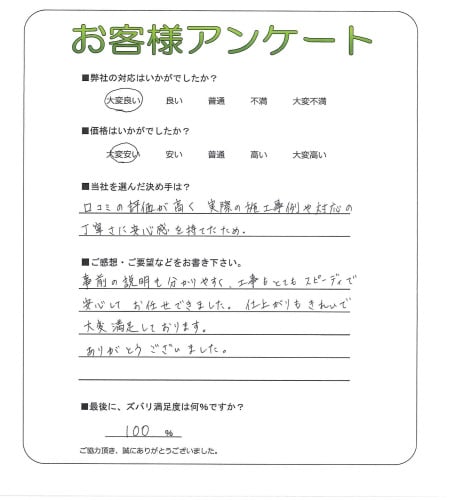 お客様アンケート
■弊社の対応はいかがでしたか?
大変良い 良い 普通 不満 大変不満
■価格はいかがでしたか?
大変安い 安い 普通 高い 大変高い
■当社を選んだ決め手は?
口コミの評価が高く 実際の施工事例や対応の
丁寧さに安心感を持てたため.
■ご感想・ご要望などをお書き下さい。
事前の説明も分かりやすく、工事もとてもスピーディで
安心して お任せできました。 仕上がりもきれいで
大変満足しております。
ありがとうございました。
■最後に、ズバリ満足度は何%ですか?
100 %
ご協力頂き、誠にありがとうございました。